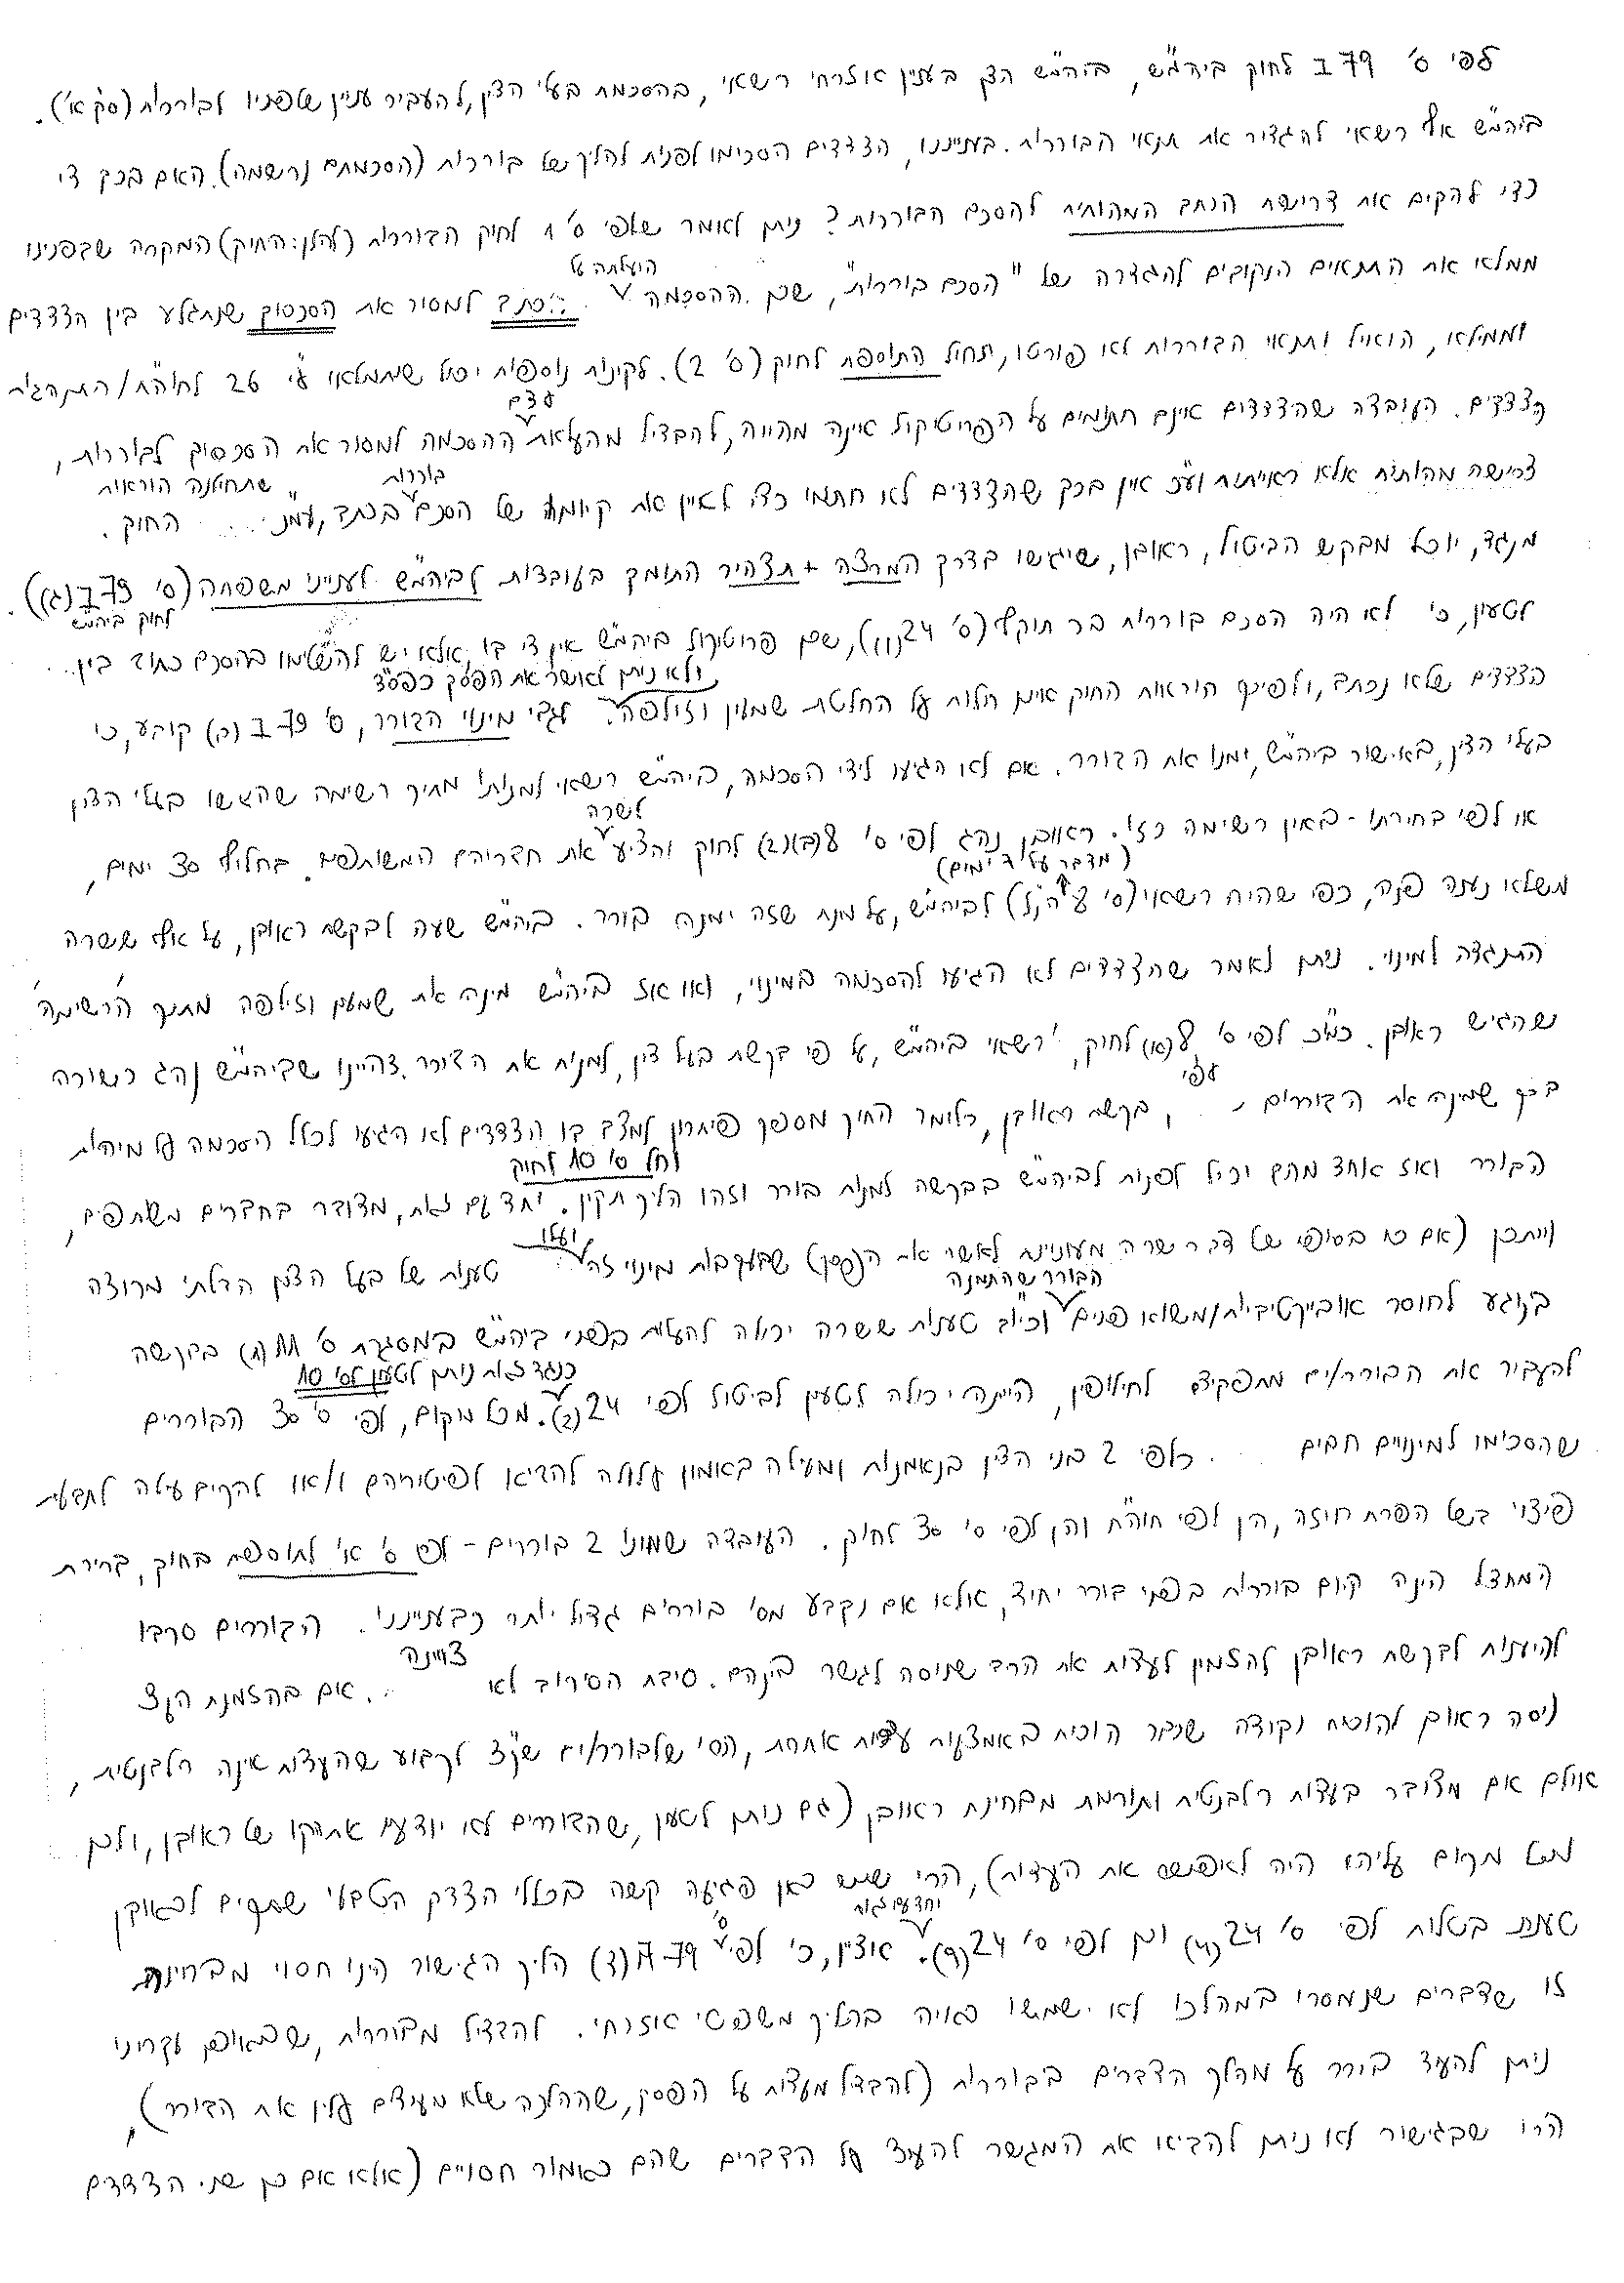 לפי ס' 79 ב לחוק ביהמ"ש, ביהמ"ש הדן בעניין אזרחי רשאי, בהסכמת בעלי הדין, להעביר עניין שלפניו לבוררות (ס"ק א').
ביהמ"ש אף רשאי להגדיר את תנאי הבוררות. בענייננו, הצדדים הסכימו לפנות להליך של בוררות (הסכמתם נרשמה). האם בכך די
כדי להקים את דרישת הכתב המהותית להסכם הבוררות? ניתן לאמר שלפי ס' 1 לחוק הבוררות (להלן: החוק) המקרה שבפנינו
הועלתה על
ממלא את התנאים הנקובים להגדרה של "הסכם בוררות", שכן ההסכמה כתב למסור את הסכסוך שנתגלע בין הצדדים
וממילא, הואיל ותנאי הבוררות לא פורטו, תחול התוספת לחוק (ס' 2). לקונות נוספות יכול שיתמלאו ע"י 26 לחוה"ח / התנהגות
עצם
הצדדים. העובדה שהצדדים אינם חתומים על הפרוטוקול אינה מהווה, להבדיל מהעלאת ההסכמה למסור את הסכסוך לבוררות,
בוררות שתחולנה הוראות
דרישה מהותית אלא ראייתית וע"כ אין בכך שהצדדים לא חתמו כדי לאיין את קיומו של הסכם בכתב, ע"מ החוק.
מנגד, יוכל מבקש הביטול, ראובן, שיגישו בדרך המרצה + תצהיר התומך בעובדות לביהמ"ש לענייני משפחה (ס' 79 ב(ג)).
לחוק ביהמ"ש
לטעון, כי לא היה הסכם בוררות בר תוקף (ס' 24(1)), שכן פרוטוקול ביהמ"ש אין די בו, אלא יש להשלימו בהסכם כתוב בין
ולא ניתן לאשר את הפסק כפס"ד
הצדדים שלא נכתב, ולפיכך הוראות החוק אינן חלות על החלטת שמעון וזילפה. לגבי מינוי הבורר, ס' 79 ב (ב) קובע, כי
בעלי הדין, באישור ביהמ"ש, ימנו את הבורר. אם לא הגיעו לידי הסכמה, ביהמ"ש רשאי למנותו מתוך רשימה שהגישו בעלי הדין
לשרה
או לפי בחירתו - באין רשימה כזו. ראובן נהג לפי ס' 8(ב)(2) לחוק והציע את חבריהם המשותפים. בחלוף 30 ימים,
(מדבר על 7 ימים)
משלא נענה פנה, כפי שהיה רשאי (ס' 8 הנ"ל) לביהמ"ש, על מנת שזה ימנה בורר. ביהמ"ש שעה לבקשת ראובן, על אף ששרה
התנגדה למינוי. ניתן לאמר שהצדדים לא הגיעו להסכמה במינוי, ואו אז ביהמ"ש מינה את שמעון וזילפה מתוך 'הרשימה'
שהגיש ראובן. כמ"כ לפי ס' 8(א) לחוק, רשאי ביהמ"ש, על פי בקשת בעל דין, למנות את הבורר. דהיינו שביהמ"ש נהג כשורה
עפ"י
בכך שמינה את הבוררים בקשת ראובן, כלומר החוק מספק פיתרון למצב בו הצדדים לא הגיעו לכלל הסכמה על מיהות
וחל ס' 10 לחוק
הבורר ואז אחד מהם יכול לפנות לביהמ"ש בבקשה למנות בורר וזהו הליך תקין. יחד עם זאת, מדובר בחברים משותפים,
ויתכן (אם כי בסופו של דבר שרה מעוניינת לאשר את הפסק) שבעקבות מינוי זה יועלו טענות של בעל הדין הבלתי מרוצה
הבורר שהתמנה
בנוגע לחוסר אובייקטיביות/משוא פנים וכיו"ב טענות ששרה יכולה להעלות בפני ביהמ"ש במסגרת ס' 11(1) בבקשה
כנגד זאת ניתן לטעון לס' 10
להעביר את הבורר/ים מתפקידם לחילופין, הייתה יכולה לטעון לביטול לפי 24(2). מכל מקום, לפי ס' 30 הבוררים
שהסכימו למינויים חבים כלפי 2 בני הדין בנאמנות ומעילה באמון עלולה להביא לפיטוריהם ו/או להקים עילה לתבוע
פיצוי בשל הפרת חוזה, הן לפי חוה"ח והן לפי ס' 30 לחוק. העובדה שמונו 2 בוררים - לפי ס' א' לתוספת בחוק, ברירת
המחדל הינה קיום בוררות בפני בורר יחיד, אלא אם נקבע מס' בוררים גדול יותר כבענייננו. הבוררים סרבו
להיענות לבקשת ראובן להזמין לעדות את הרב שניסה לגשר בינהם. סיבת הסירוב לא צויינה. אם בהזמנת העד
ניסה ראובן להוכיח נקודה שכבר הוכיח באמצעות עדות אחרת, הרי שלבורר/ים שק"ד לקבוע שהעדות אינה רלבנטית,
אולם אם מדובר בעדות רלבנטית ותורמת מבחינת ראובן (גם ניתן לטעון, שהבוררים לא יודעים של ראובן, ולכן
מכל מקום עליהם היה לאפשר את העדות), הרי שיש כאן פגיעה קשה בכללי הצדק הטבעי שתקים לראובן
יחד עם זאת
טענת בטלות לפי ס' 24(4) וכן לפי ס' 24(9). אציין, כי לפי ס' 79 ג(ד) הליך הגישור הינו חסוי מבחינה
זו שדברים שנמסרו במהלכו לא ישמשו ראיה בהליך משפטי אזרחי. להבדיל מבוררות, שבאופן עקרוני
ניתן להעיד בורר על מהלך הדברים בבוררות (להבדיל מעדות על הפסק, שההלכה שלא מעידים עליו את הבורר),
הרי שבגישור לא ניתן להביא את המגשר להעיד על הדברים שהם כאמור חסויים (אלא אם כן שני הצדדים